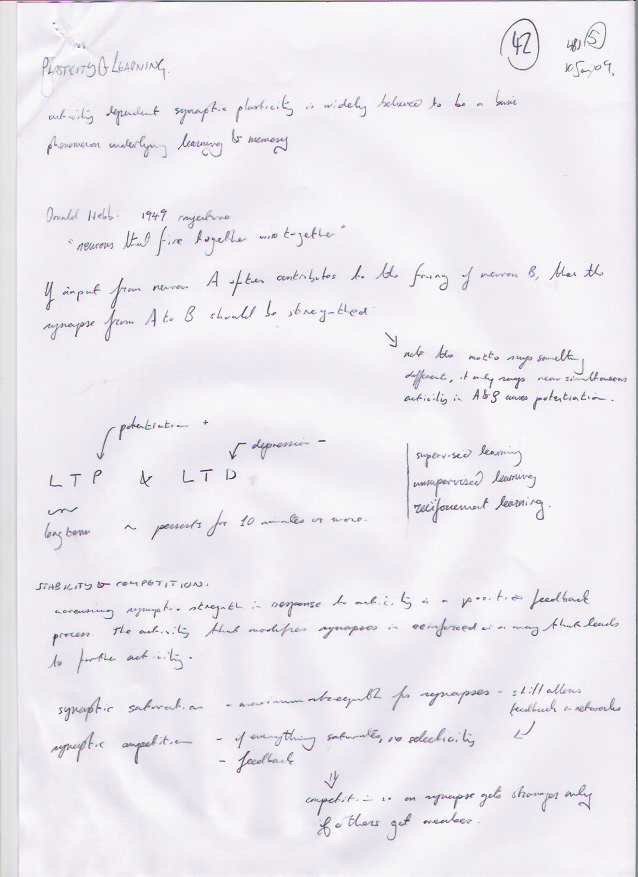 42
5
PLASTICITY & LEARNING.
10 Jan 09.
activity dependent synaptic plasticity is widely believed to be a basic
phenomenon underlying learning & memory
Donald Hebb. 1949
"neurons that fire together wire together"
If input from neuron A often contributes to the firing of neuron B, then the
synapse from A to B should be strengthed
note the motto says something
different, it only says near simultaneous
activity in A&B causes potentiation.
potentiation +
depression -
LTP & LTD
long term ~ persists for 10 minutes or more.
supervised learning
unsupervised learning
reinforcement learning.
STABILITY & COMPETITION.
increasing synaptic strength in response to activity is a positive feedback
process. The activity that modifies synapses is reinforced in a way that leads
to further activity.
synaptic saturation - maximum strength for synapses - still allows
feedback in networks
synaptic competition - if everything saturates, no selectivity
- feedback
competition so on synapse gets stronger only
if others get weaker.